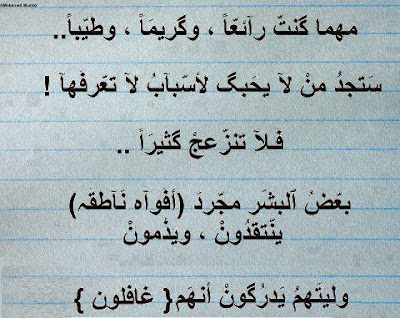 مهما گنتّ رآئعّاً ، وگريمَاً ، وطيّباً..
سَتجدُ منْ لآ يحَبگ لأسّبآبُ لآ تعّرفهآ !
فـلآ تنزّعجْ گثيرَاً ..
بعّضُ آلبشَر مجّردَ (أفوآه نَآطقہ)
ينّتقدُونْ ، ويذْمونْ
وليتَهمُ يَدرُگونْ أنهَم{ غافلون }